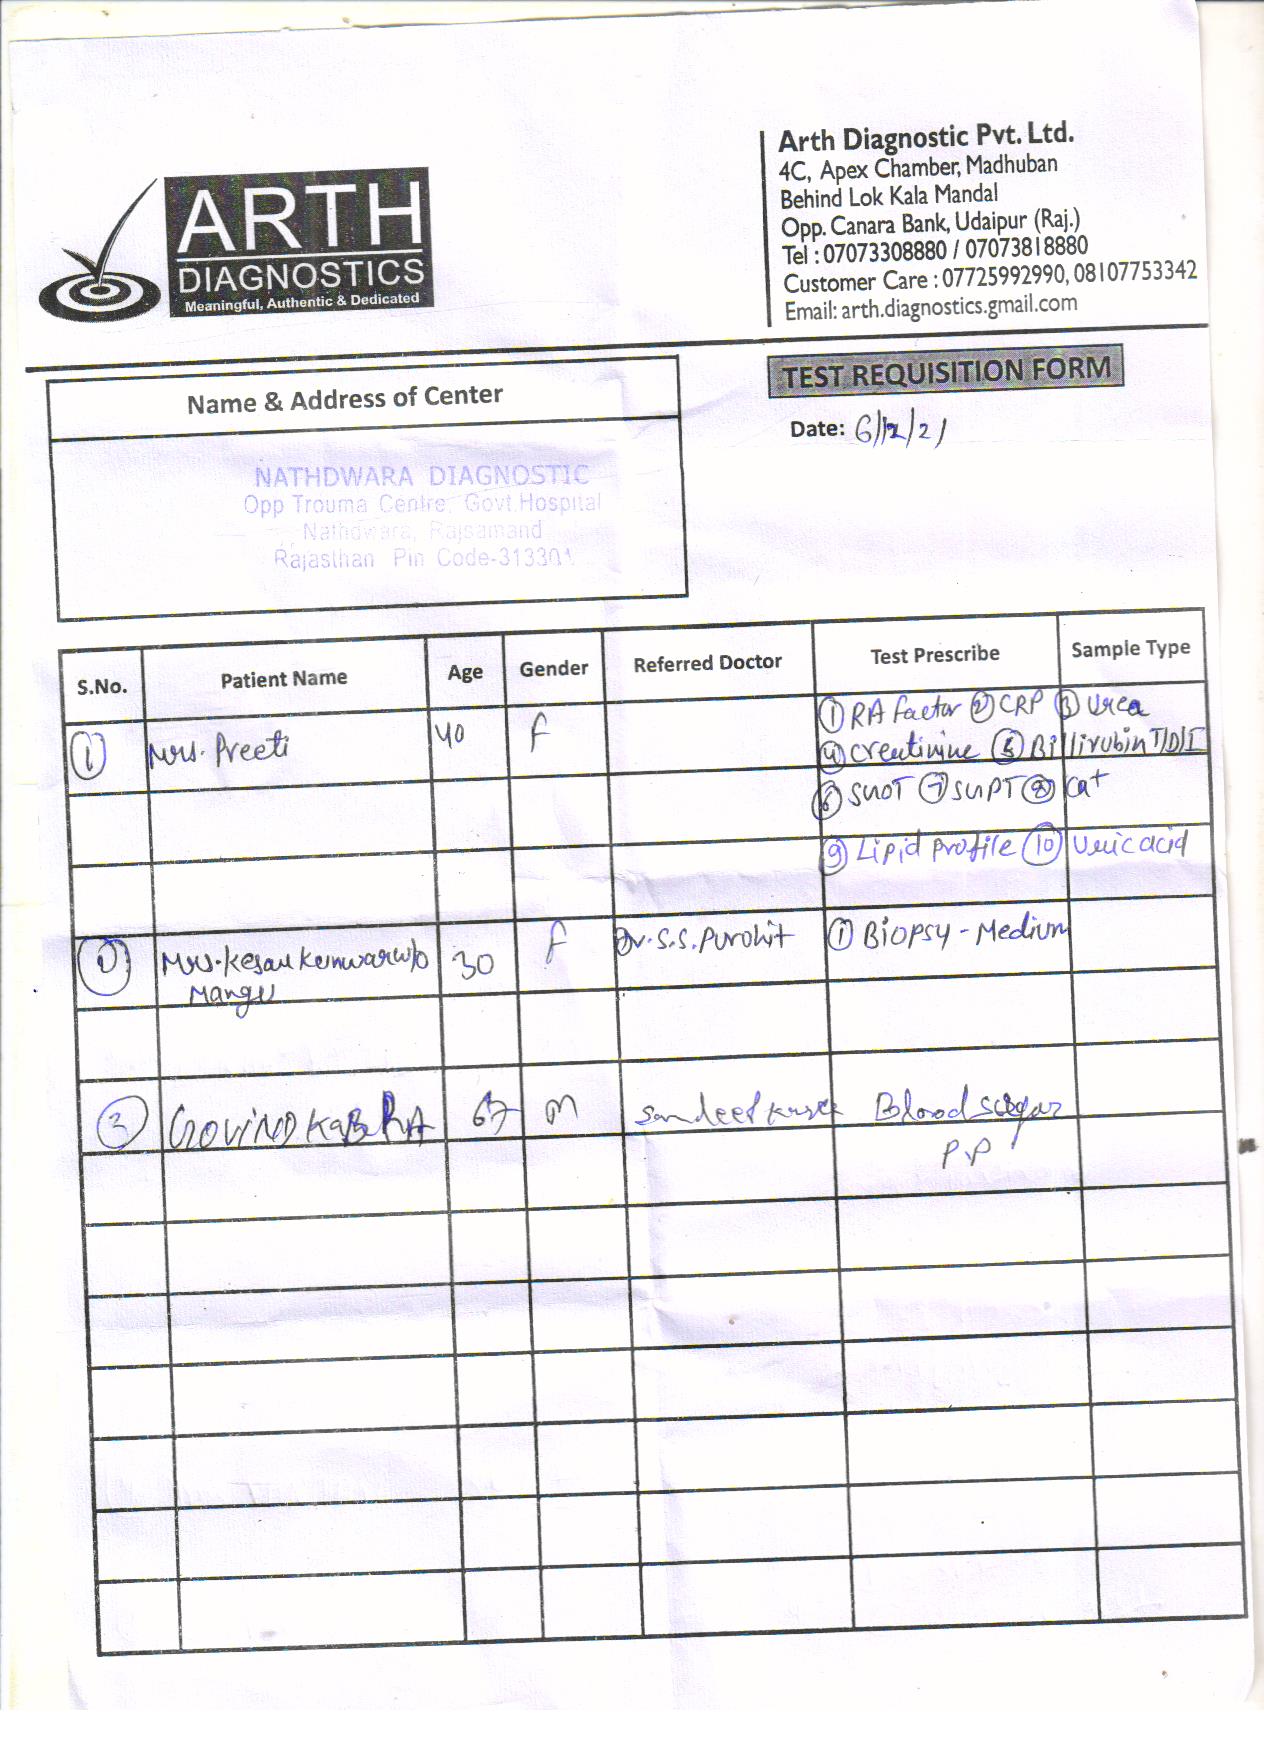 ARTH
DIAGNOSTICS
Meaningful, Authentic & Dedicated
Arth Diagnostic Pvt. Ltd.
4C, Apex Chamber, Madhuban
Behind Lok Kala Mandal
Opp. Canara Bank, Udaipur (Raj.)
Tel : 07073308880 / 07073818880
Customer Care : 07725992990, 08107753342
Email: arth.diagnostics.gmail.com
Name & Address of Center
NATHDWARA DIAGNOSTIC
Opp Trouma Centre, Govt.Hospital
Nathdwara, Rajsamand
Rajasthan Pin Code-313301
TEST REQUISITION FORM
Date: 6/12/21
S.No. Patient Name Age Gender Referred Doctor Test Prescribe Sample Type
① Mrs. Preeti 40 F ① RA factor ② CRP ③ Urea
④ creatinine ⑤ Billirubin T/D/I
⑥ SGOT ⑦ SGPT ⑧ Ca+
⑨ Lipid profile ⑩ Uric acid
② Mrs. Kesar Kunwar w/o 30 F Dr. S.S. Purohit ① Biopsy - Medium
Mangu
③ GOVIND KABRA 67 M Sandeep Blood sugar
P.P